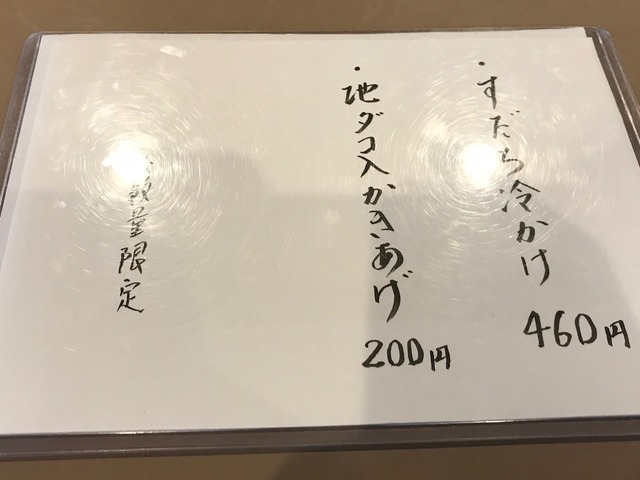 ・すだち冷かけ
460円
・地ダコ入かきあげ
200円
量限定